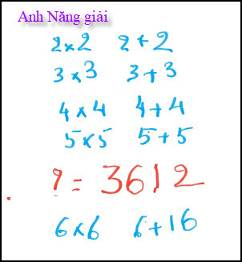 Anh Năng giải
2×2 2+2
3×3 3+3
4×4 4+4
5×5 5+5
? = 3612
6×6 6+16